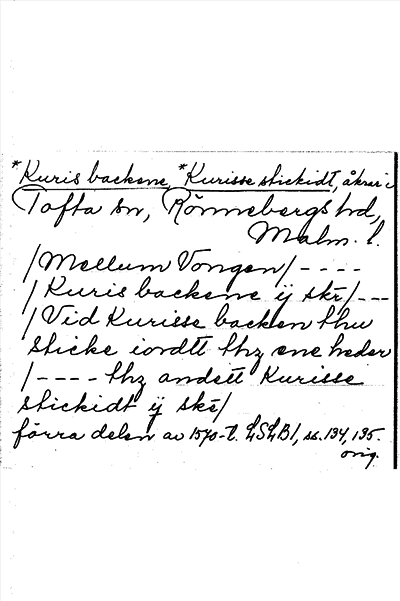 *Kuris backene, *Kurisse stickidt, åkrar i
Tofta sn, Rönnebergs hd,
Malm. l.
/Mellum Vongen/ - - - -
/Kuris backene ij skr/ - - -
/Vid Kurisse backen thu
sticke iordtt thz ene heder
/ - - - - thz andett Kurisse
stickidt ij skr/
förra delen av 1570-t. LSLB1, ss. 134, 135.
orig.